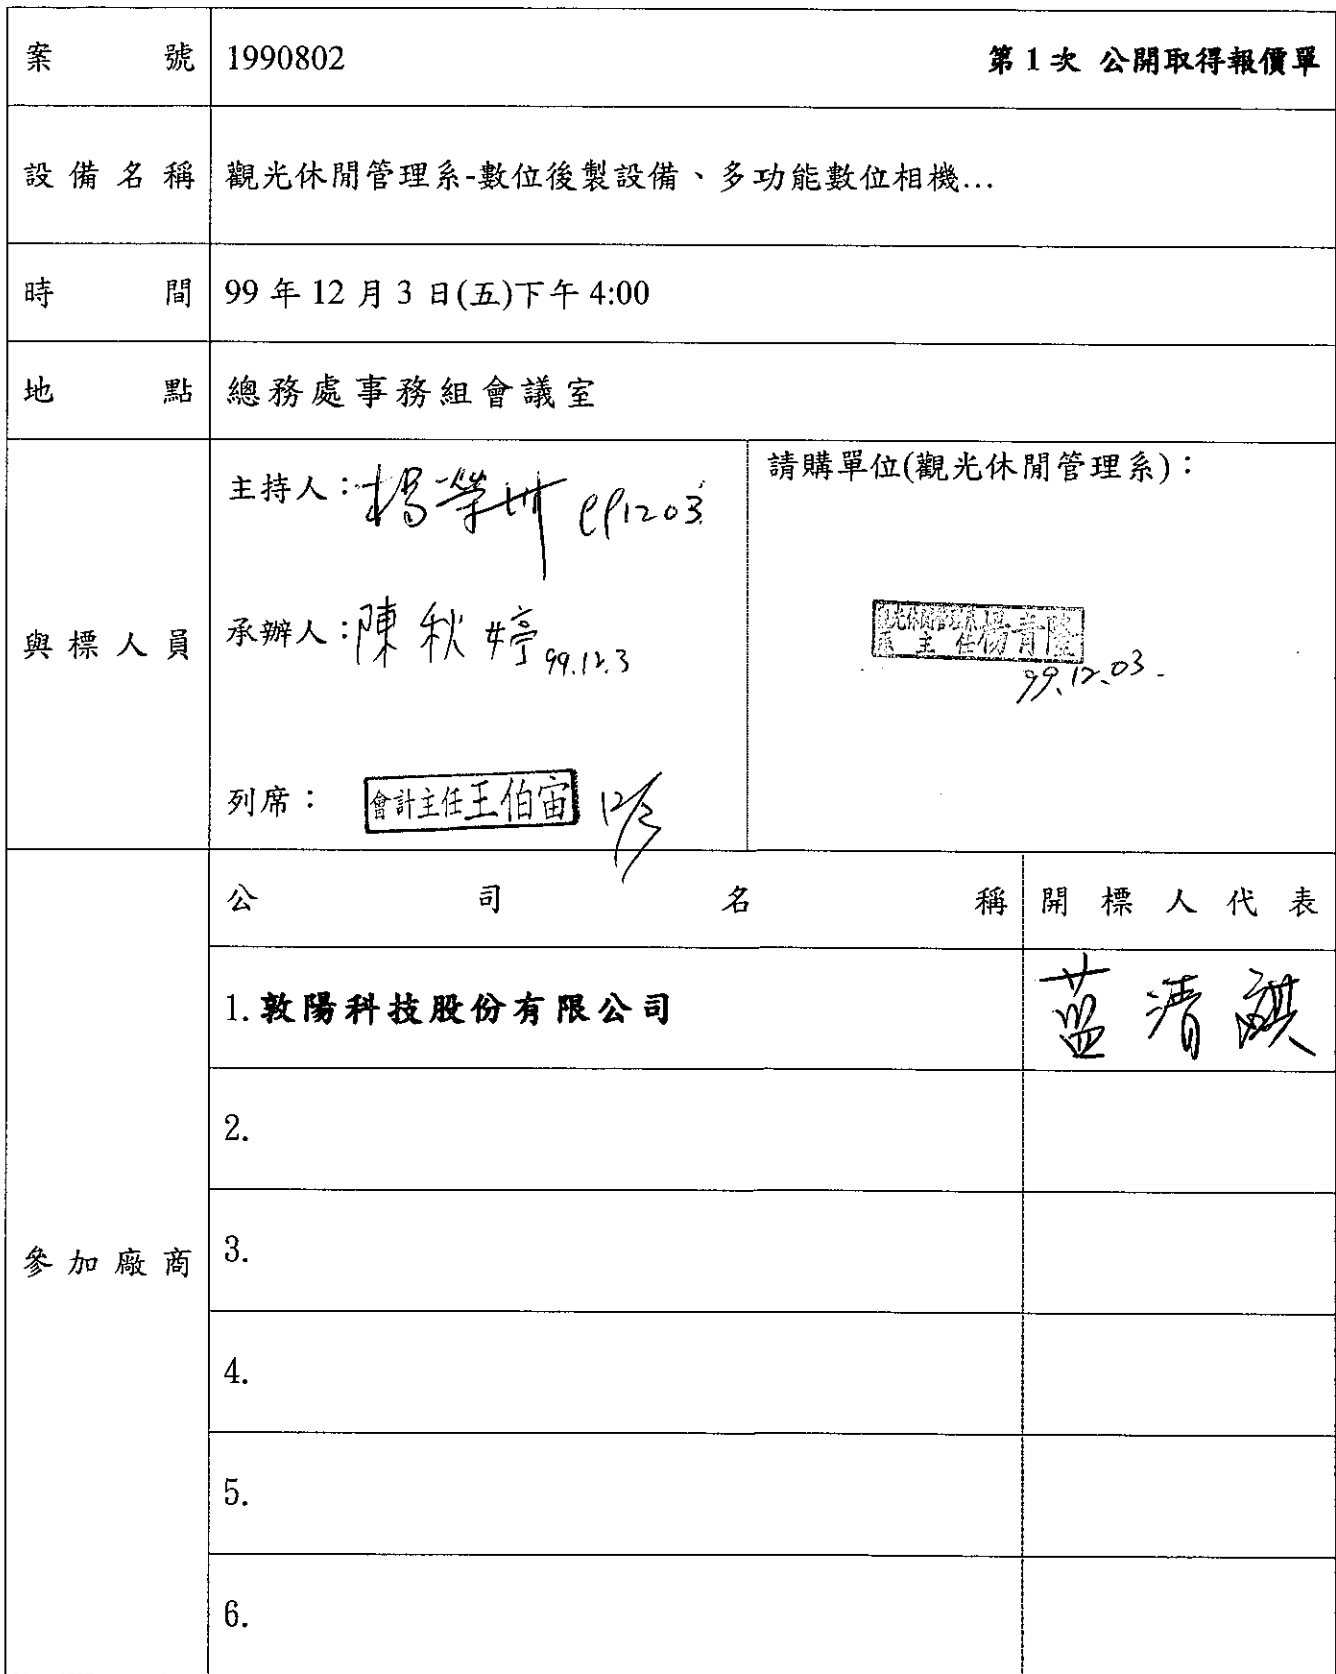 案號 1990802 第1次 公開取得報價單
設備名稱 觀光休閒管理系-數位後製設備、多功能數位相機...
時間 99年12月3日(五)下午4:00
地點 總務處事務組會議室
與標人員
主持人：楊榮 991203
承辦人：陳秋婷 99.12.3
列席： 會計主任王伯宙 12/3
請購單位(觀光休閒管理系)：
觀光休閒管理系
系主任楊青隆
99.12.03.
參加廠商
公司名稱 開標人代表
1.敦陽科技股份有限公司 藍清
2.
3.
4.
5.
6.